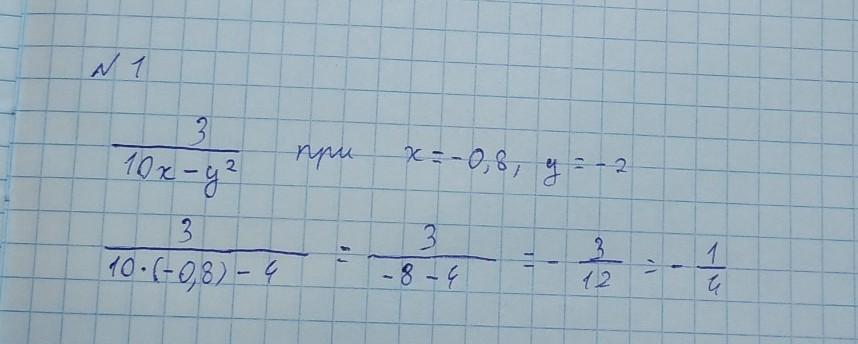 № 1
3/(10x - y²) при x = -0,8, y = -2
3/(10·(-0,8) - 4) = 3/(-8 - 4) = - 3/12 = - 1/4